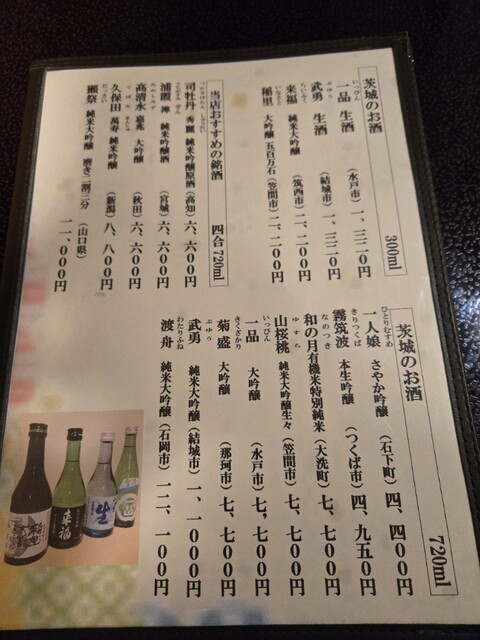 茨城のお酒 300ml
いっぴん
一品 生酒 (水戸市) 一、三二〇円
ぶゆう
武勇 生酒 (結城市) 一、三二〇円
らいふく
来福 純米大吟醸 (筑西市) 二、二〇〇円
いなさと
稲里 大吟醸 五百万石 (笠間市) 二、二〇〇円
当店おすすめの銘酒 四合 720ml
司牡丹 秀麗 純米吟醸原酒 (高知) 六、六〇〇円
浦霞 禅 純米吟醸酒 (宮城) 六、六〇〇円
高清水 嘉兆 大吟醸 (秋田) 六、六〇〇円
くぼた まんじゅ
久保田 萬寿 純米吟醸 (新潟) 八、八〇〇円
だっさい
獺祭 純米大吟醸 磨き二割三分 (山口県) 一一、〇〇〇円
茨城のお酒 720ml
ひとりむすめ
一人娘 さやか吟醸 (石下町) 四、四〇〇円
きりつくば
霧筑波 本生吟醸 (つくば市) 四、九五〇円
なのつき
和の月 有機米特別純米 (大洗町) 七、七〇〇円
ゆすら
山桜桃 純米大吟醸生々 (笠間市) 七、七〇〇円
いっぴん
一品 大吟醸 (水戸市) 七、七〇〇円
きくさかり
菊盛 大吟醸 (那珂市) 七、七〇〇円
ぶゆう
武勇 純米大吟醸 (結城市) 一一、〇〇〇円
わたりふね
渡舟 純米大吟醸 (石岡市) 一二、一〇〇円
来福
生